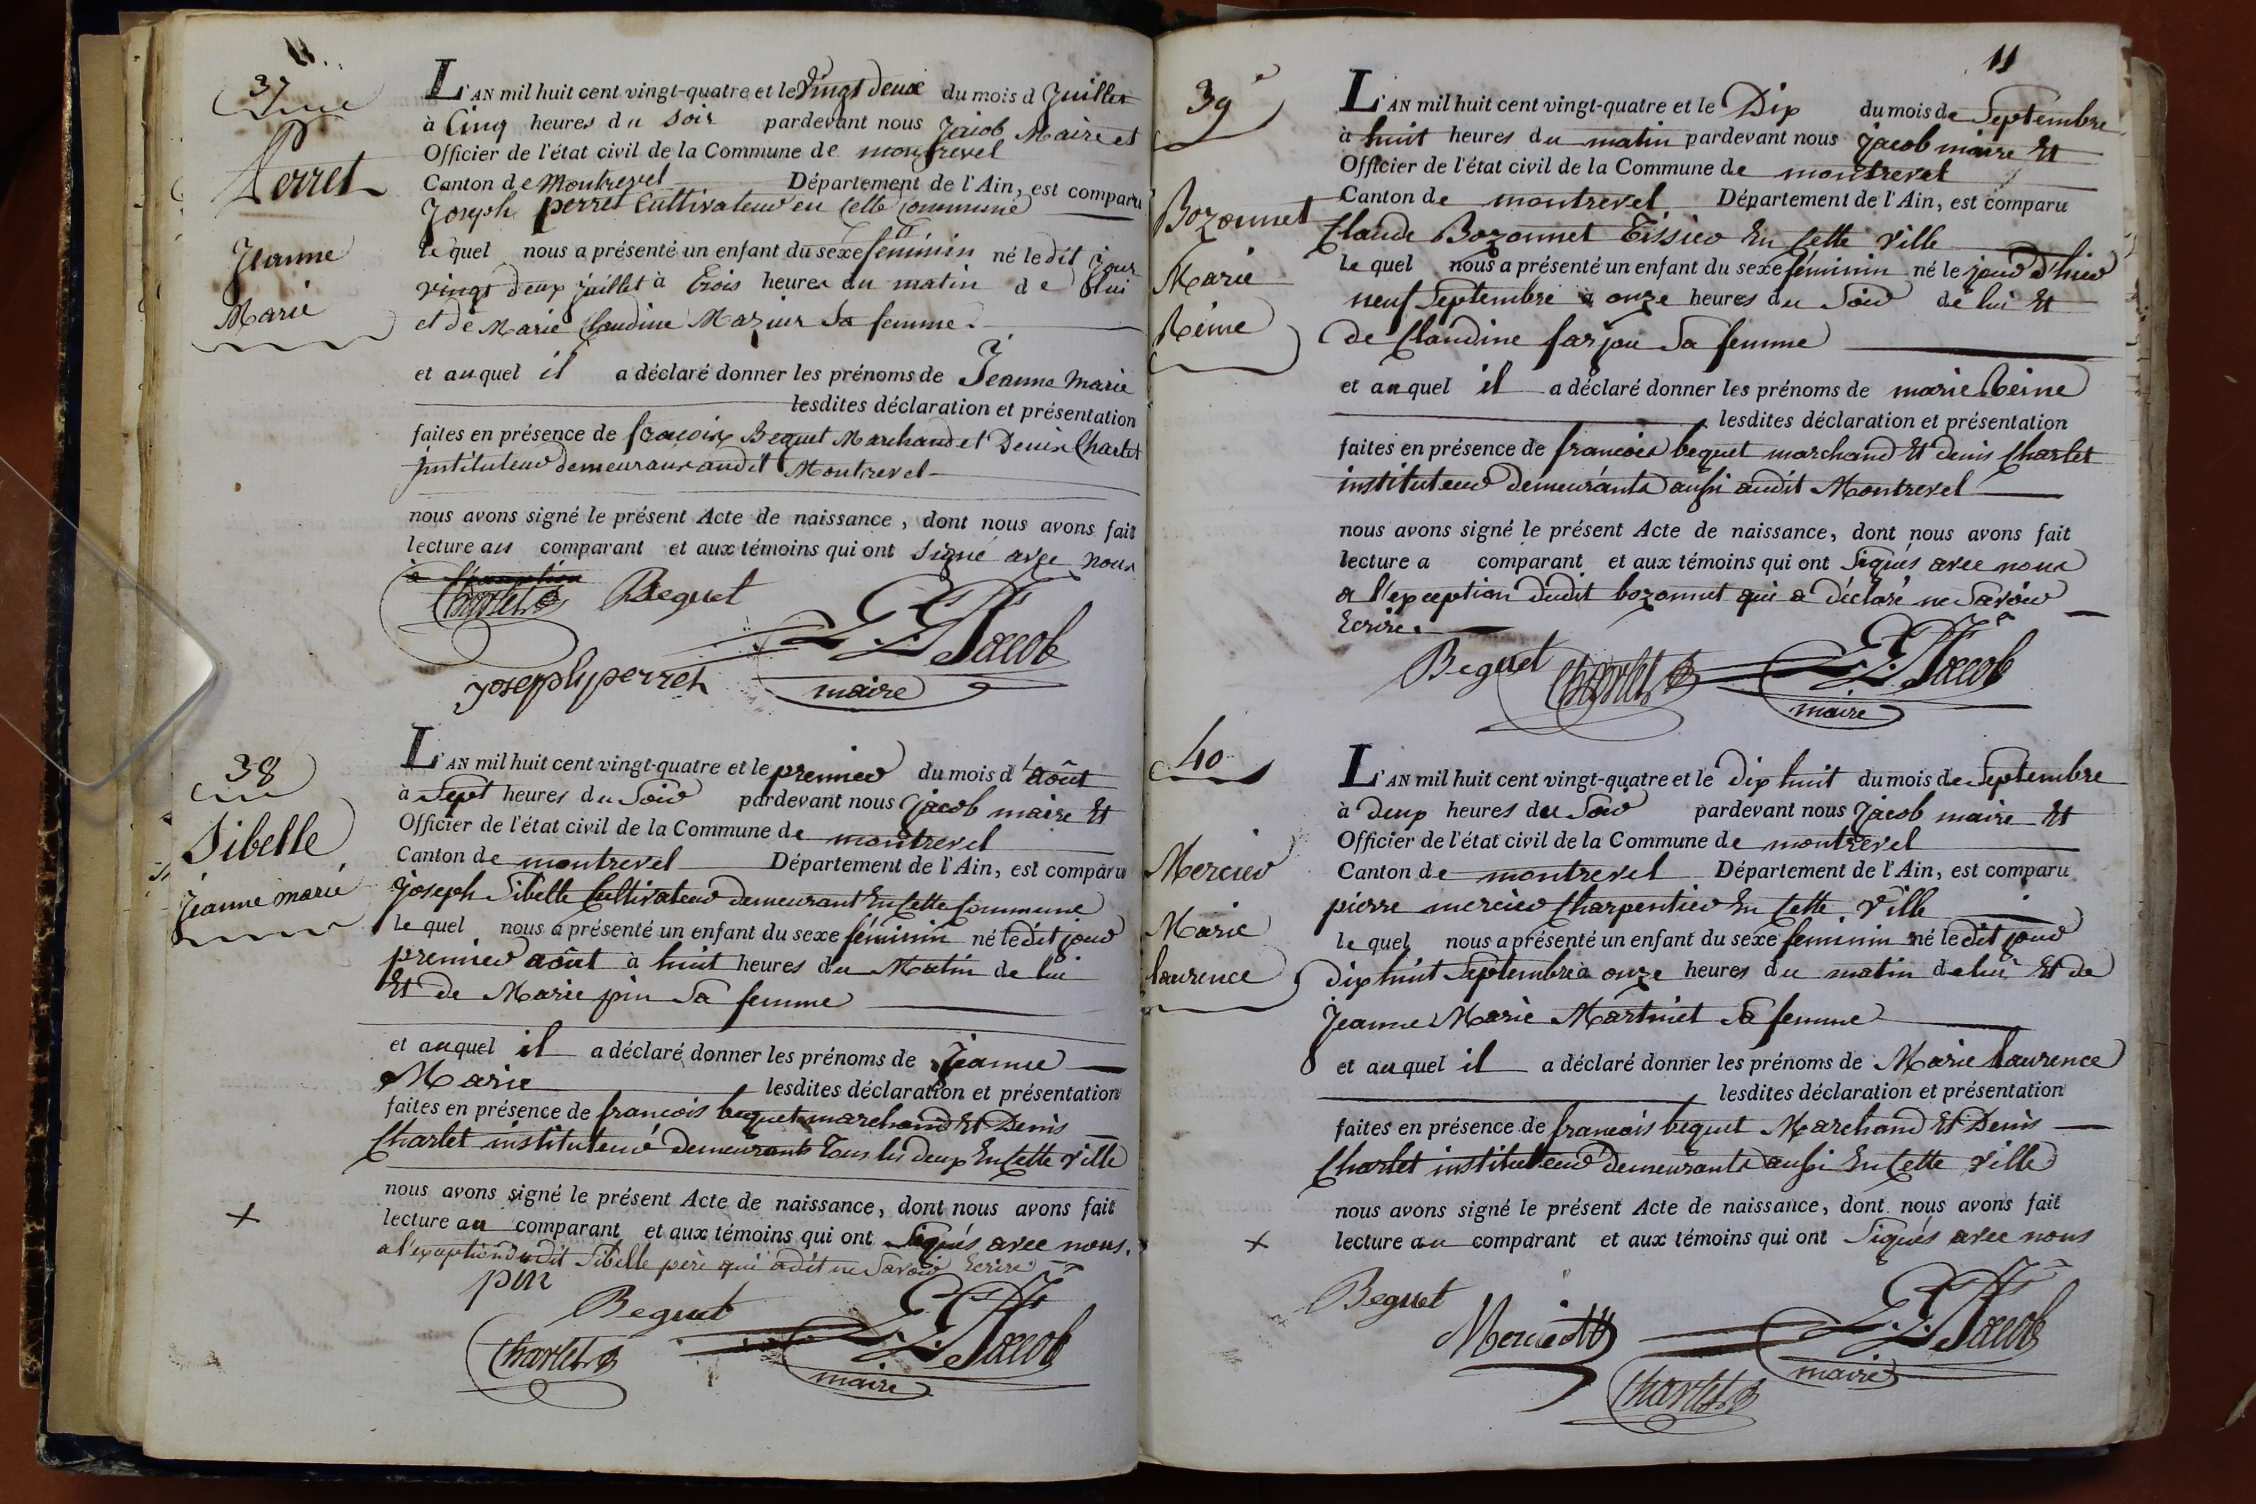 37eme
Perret
Jeanne
Marie
L'AN mil huit cent vingt-quatre et le vingt deux du mois d Juillet
à Cinq heures du soir pardevant nous Jacob Maire et
Officier de l'état civil de la Commune de montrevel
Canton de Montrevel Département de l'Ain, est comparu
Joseph perret Cultivateur en cette commune
le quel nous a présenté un enfant du sexe féminin né le dit jour
vingt deux juillet à trois heures du matin de lui
et de Marie Claudine Mazuir sa femme.
et auquel il a déclaré donner les prénoms de Jeanne Marie
lesdites déclaration et présentation
faites en présence de françois Bequet Marchand et Denis Charlet
instituteur demeurans audit Montrevel
nous avons signé le présent Acte de naissance, dont nous avons fait
lecture au comparant et aux témoins qui ont signé avec nous
à l'exception
Charlet Bequet
Jacob
joseph perret maire
38
Sibelle
Jeanne marie
L'AN mil huit cent vingt-quatre et le premier du mois d'août
à Sept heures du Soir pardevant nous jacob maire Et
Officier de l'état civil de la Commune de montrevel
Canton de montrevel Département de l'Ain, est comparu
Joseph Sibelle Cultivateur demeurant En Cette Commune
le quel nous a présenté un enfant du sexe féminin né ledit jour
premier août à huit heures du Matin de lui
Et de Marie pin Sa femme
et auquel il a déclaré donner les prénoms de Jeanne
Marie lesdites déclaration et présentation
faites en présence de francois bequet marchand Et Denis
Charlet instituteur demeurants tous les deux En Cette Ville
nous avons signé le présent Acte de naissance, dont nous avons fait
lecture au comparant et aux témoins qui ont Signés avec nous.
a l'exception dudit Sibelle père qui a dit ne Savoir Ecrire
pin
Bequet
Charlet Jacob
maire
11
39e
Bozonnet
Marie
Reine
L'AN mil huit cent vingt-quatre et le Dix du mois de Septembre
à huit heures du matin pardevant nous Jacob maire Et
Officier de l'état civil de la Commune de montrevel
Canton de montrevel Département de l'Ain, est comparu
Claude Bozonnet Tissier En Cette Ville
le quel nous a présenté un enfant du sexe féminin né le jour d'hier
neuf Septembre à onze heures du Soir de lui Et
de Claudine farjou Sa femme
et auquel il a déclaré donner les prénoms de marie Reine
lesdites déclaration et présentation
faites en présence de francois bequet marchand Et denis Charlet
instituteur demeurants aussi audit Montrevel
nous avons signé le présent Acte de naissance, dont nous avons fait
lecture a comparant et aux témoins qui ont Signés avec nous
a l'exception dudit bozonnet qui a déclaré ne Savoir
Ecrire.
Bequet Charlet Jacob
maire
40
Mercier
Marie
laurence
L'AN mil huit cent vingt-quatre et le dix huit du mois de Septembre
à deux heures du Soir pardevant nous Jacob maire Et
Officier de l'état civil de la Commune de montrevel
Canton de montrevel Département de l'Ain, est comparu
pierre mercier Charpentier En Cette Ville
le quel nous a présenté un enfant du sexe feminin né ledit jour
dix huit Septembre à onze heures du matin de lui Et de
Jeanne Marie Martinet Sa femme
et auquel il a déclaré donner les prénoms de Marie laurence
lesdites déclaration et présentation
faites en présence de francois bequet Marchand Et Denis
Charlet instituteur demeurants aussi En Cette Ville
nous avons signé le présent Acte de naissance, dont nous avons fait
lecture au comparant et aux témoins qui ont Signés avec nous
Bequet
Mercier Jacob
maire
Charlet